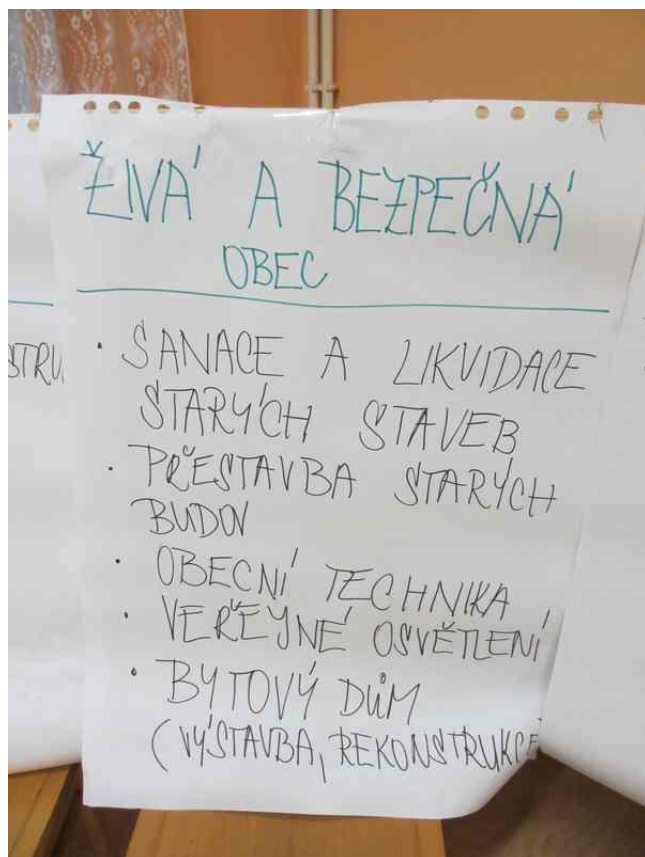 ŽIVÁ A BEZPEČNÁ
OBEC
STRU
• SANACE A LIKVIDACE
STARÝCH STAVEB
• PŘESTAVBA STARÝCH
BUDOV
• OBECNÍ TECHNIKA
• VEŘEJNÉ OSVĚTLENÍ
• BYTOVÝ DŮM
(VÝSTAVBA, REKONSTRUKCE